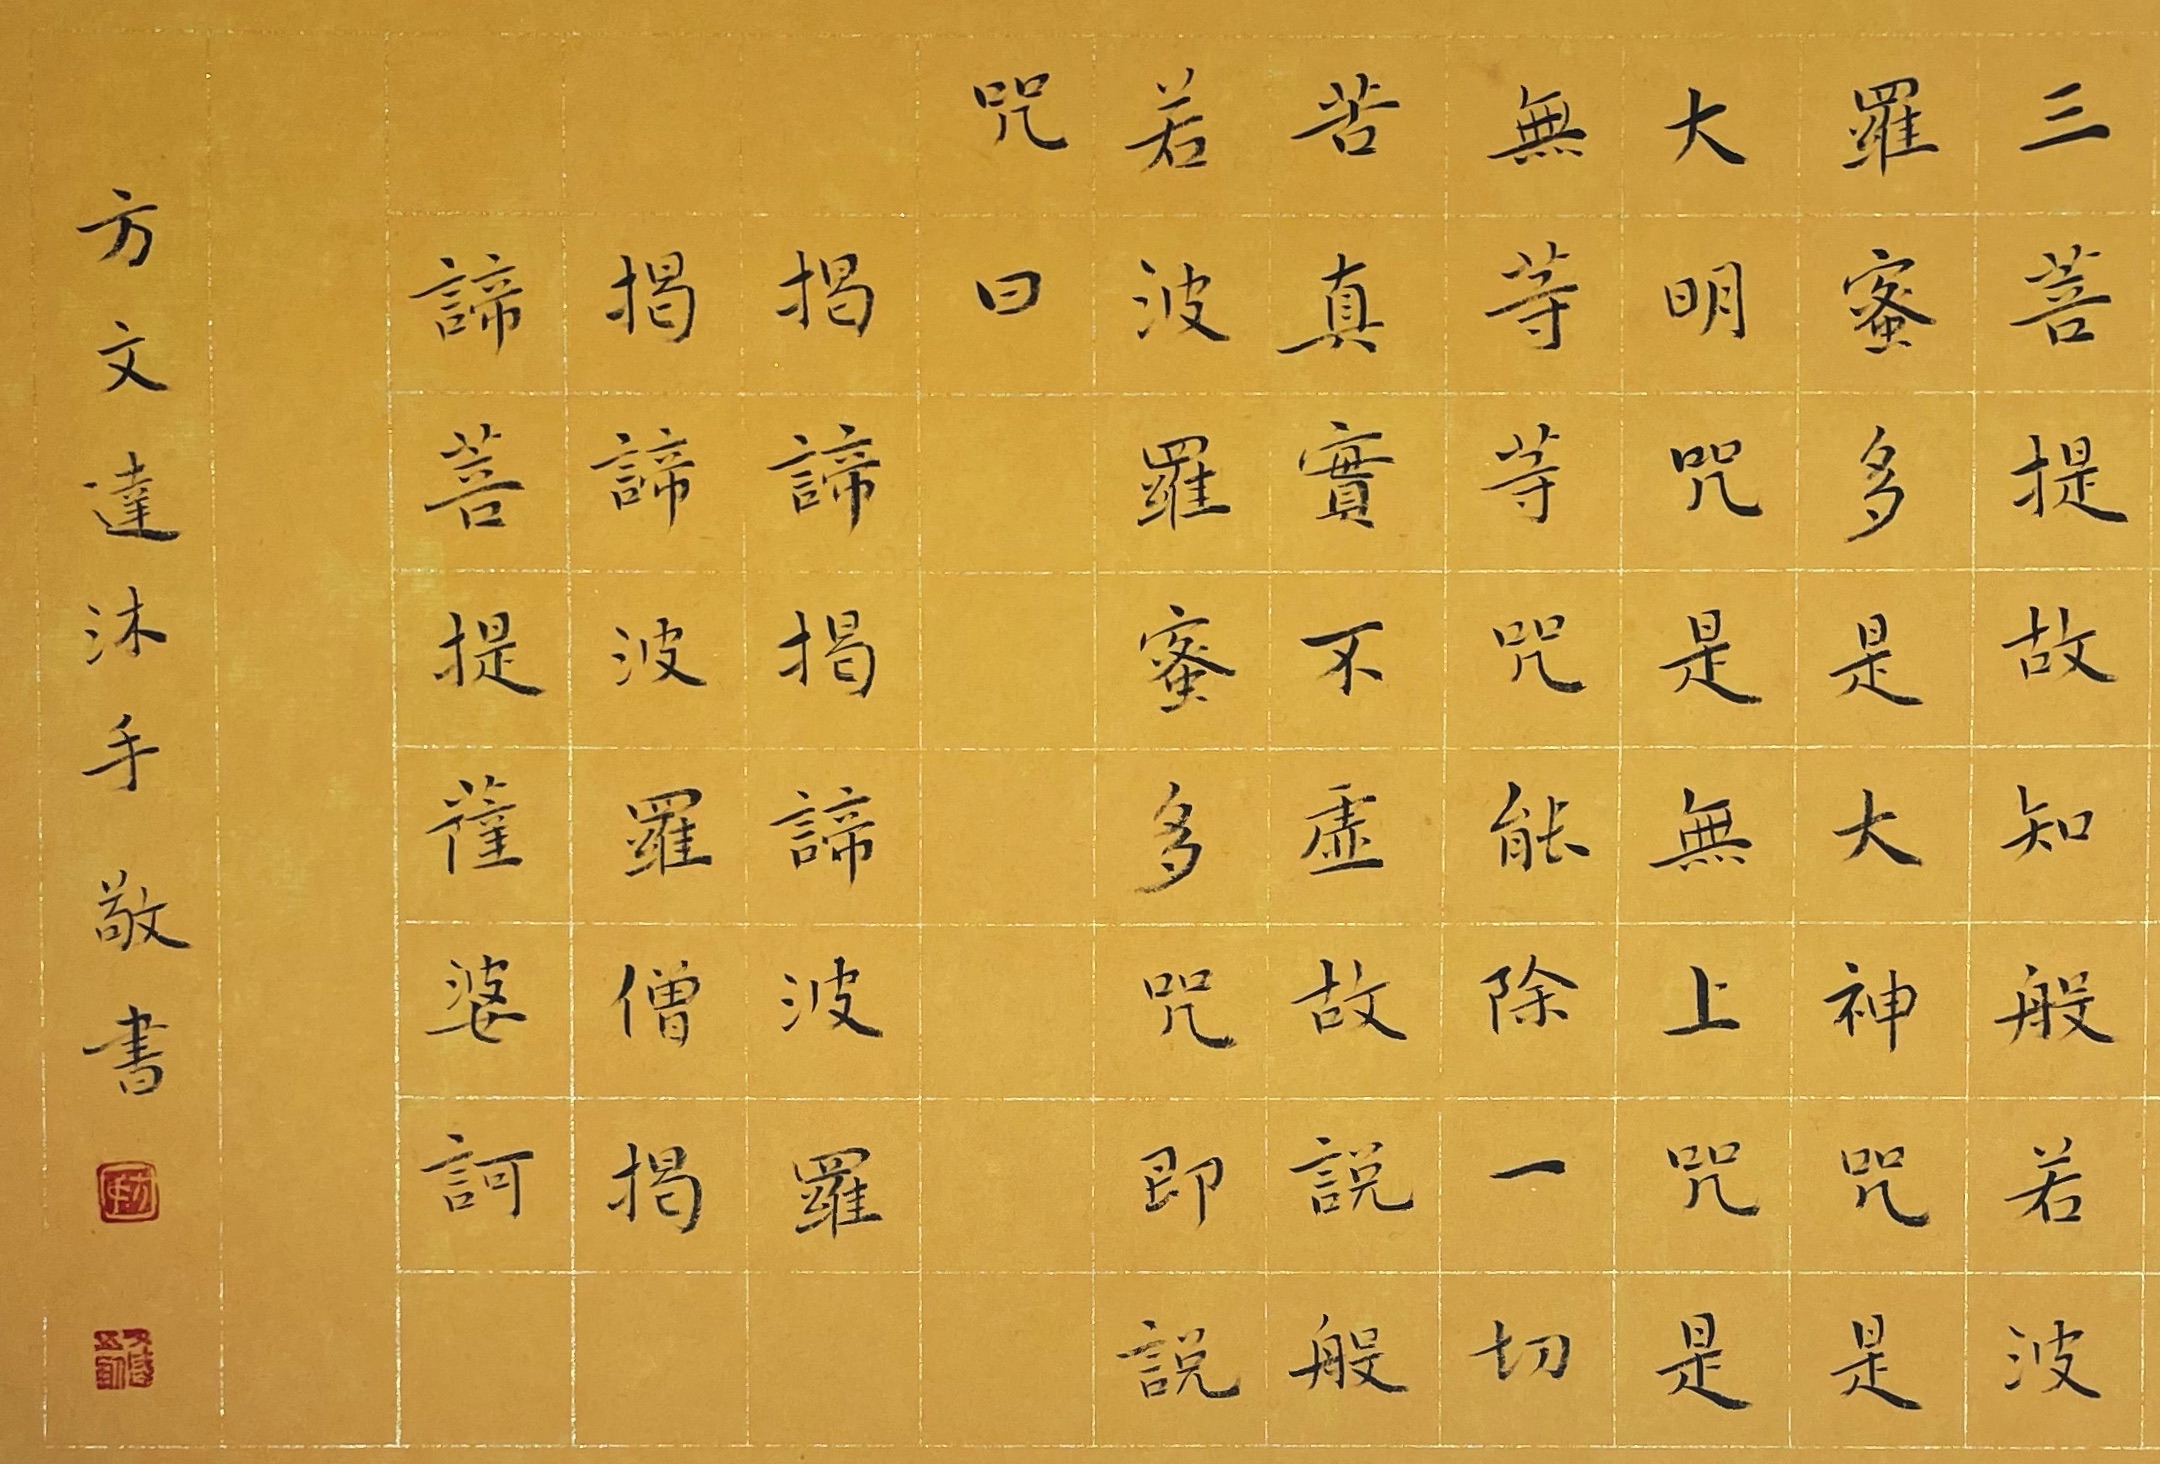 三菩提故知般若波
羅蜜多是大神咒是
大明咒是無上咒是
無等等咒能除一切
苦真實不虛故說般
若波羅蜜多咒即說
咒曰
揭諦揭諦波羅
揭諦波羅僧揭
諦菩提薩婆訶
方文達沐手敬書